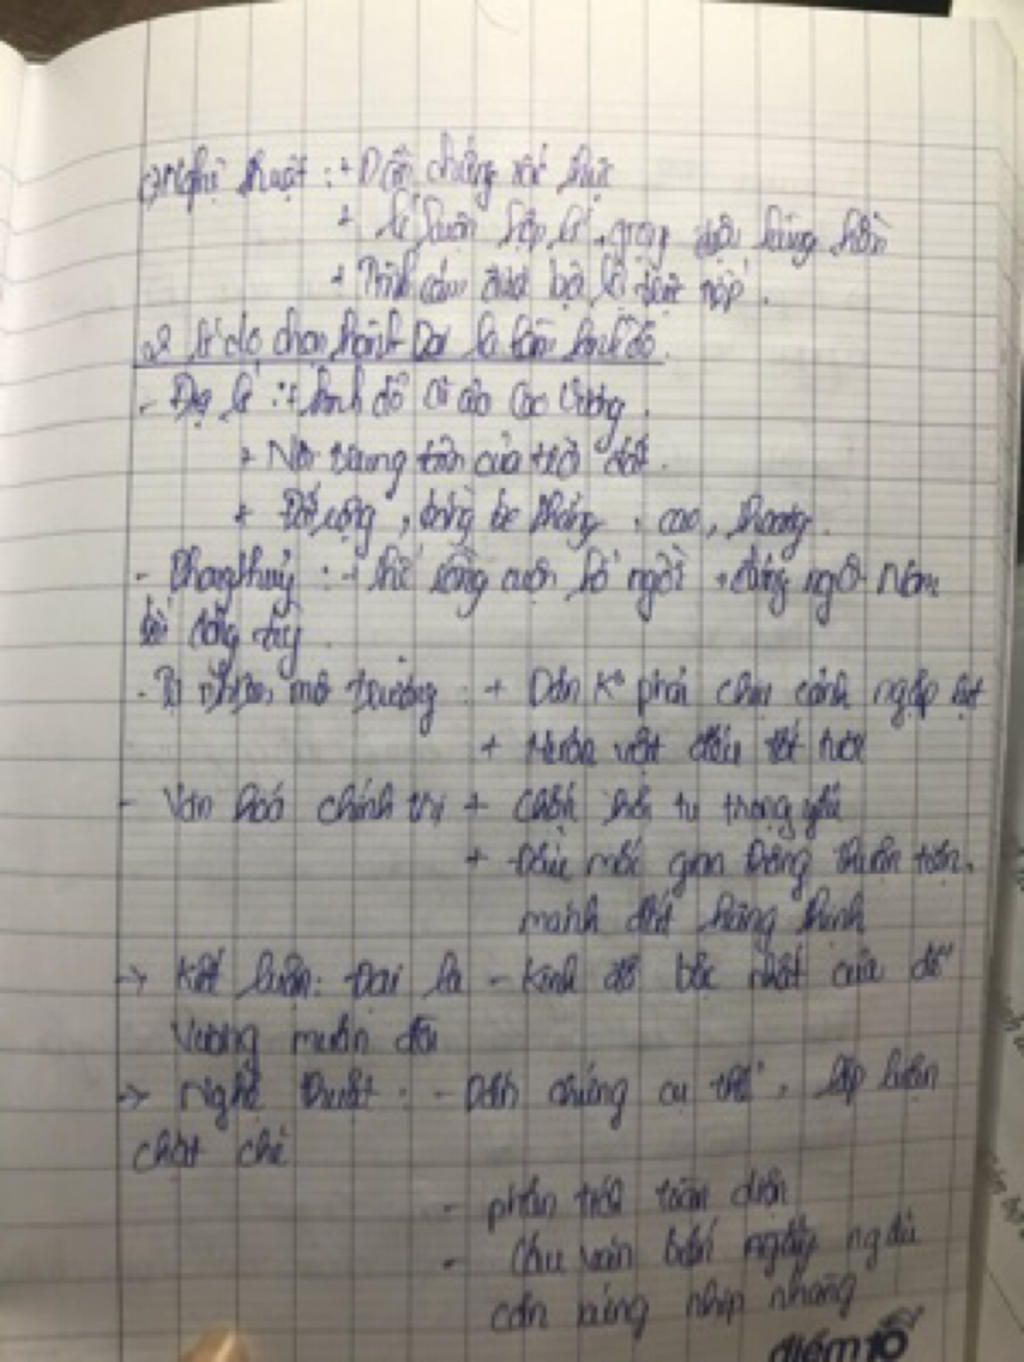 Nghệ thuật : + Dẫn chứng xác thực
+ Lí luận hợp lí, giọng điệu hùng hồn
+ Tình cảm được bộc lộ trực tiếp.
2 Lí do chọn thành Đại la làm kinh đô.
- Địa lí : + kinh đô cũ của Cao Vương.
+ Nơi trung tâm của trời đất.
+ Đất rộng, bằng phẳng, cao, thoáng.
- Phong thủy : + thế rồng cuộn hổ ngồi + đúng ngôi Nam
bắc đông tây.
- môi trường : + Dân K° phải chịu cảnh ngập lụt
+ Muôn vật đều tốt tươi
- Văn hoá chính trị + chốn hội tụ trọng yếu
+ Đầu mối giao thông thuận tiện,
mảnh đất hưng thịnh
→ Kết luận: Đại la - Kinh đô bậc nhất của đế
Vương muôn đời
→ Nghệ thuật : - Dẫn chứng cụ thể, lập luận
chặt chẽ
- phân tích toàn diện
- Câu văn biền ngẫu
cân xứng nhịp nhàng
điểm 10